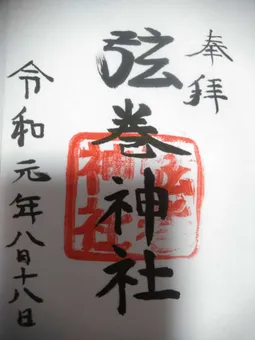 奉拝
弦巻神社
弦巻
神社
令和元年八月十八日